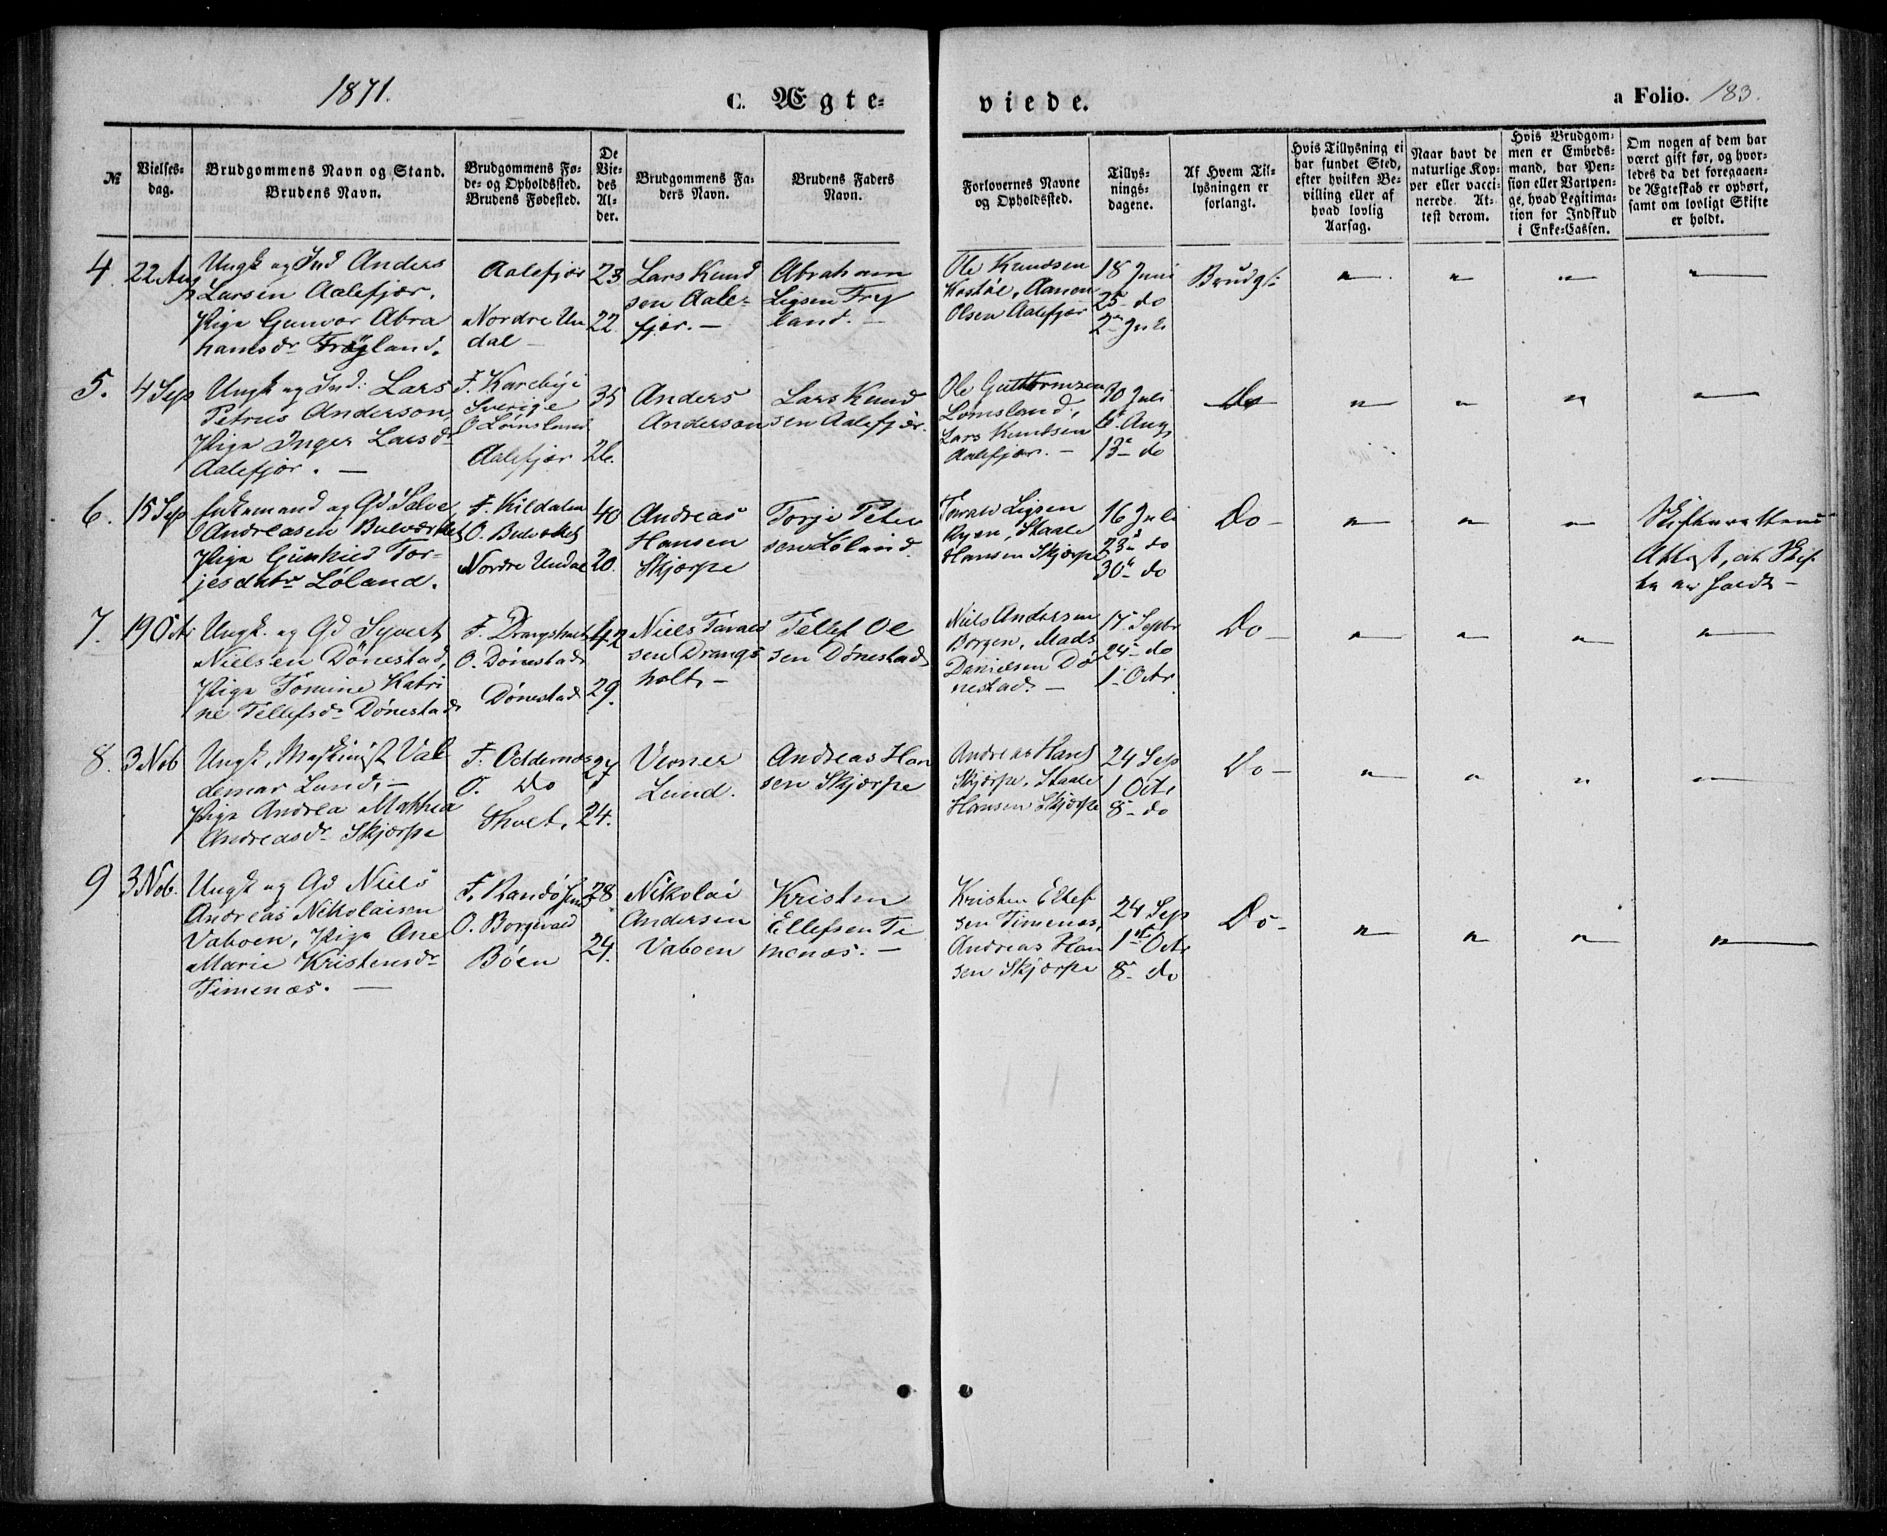 1871.
C. Ægte=
viede.
a Folio. 183.
№
Vielses=
dag.
Brudgommens Navn og Stand.
Brudens Navn.
Brudgommens Fø=
de= og Opholdssted.
Brudens Fødested.
De
Vie=
des
Al=
der.
Brudgommens Fa=
ders Navn.
Brudens Faders
Navn.
Forlovernes Navne
og Opholdssted.
Tillys=
nings=
dagene.
Af Hvem Til=
lysningen er
forlangt.
Hvis Tillysning ei
har fundet Sted,
efter hvilken Be=
villing eller af
hvad lovlig
Aarsag.
Naar havt de
naturlige Kop=
per eller vacci=
nerede At=
test derom.
Hvis Brudgom=
men er Embeds=
mand, har Pen=
sion eller Vartpen=
ge, hvad Legitima=
tion for Indskud
i Enke=Cassen.
Om nogen af dem har
været gift før, og hvor=
ledes da det foregaaen=
de Ægteskab er ophørt,
samt om lovligt Skifte
er holdt.
4
22 Aug
Ungk og Ind Anders
Larsen Aalefjær.
Pige Gunvor Abra
hamsdr Frøyland.
Aalefjær
Nordre Un
dal —
23
22.
Lars Knud
sen Aale=
fjær. —
Abraham
Ligsen Frø
land. —
Ole Knudsen
Kostøl, Aanon
Olsen Aalefjær
18 Juni
25 do
2 Juli
Brudg:
" " " "
5.
4 Sep
Ungk og Ind: Lars
Petrus Anderson
Pige Inger Larsdr
Aalefjær. —
F. Kareby i
Sverige
O Lømsland
Aalefjær
35
26.
Anders
Anderson
Lars Knud
sen Aalefjær.
Ole Guttormsen
Lømsland,
Lars Knudsen
Aalefjær. —
30 Juli
6 Aug
13 do
Do
" " " "
6.
15 Sep
Enkemand og Gd Salve
Andreasen Bulværket
Pige Gunhild Tor=
jesdatr Løland.
F. Kildalen
O. Bulvket
Nordre Undal
40
20.
Andreas
Hansen
Skjærpe
Torje Peter
sen Løland.
Ligsen
Ryen, Staale
Hansen Skjærpe
16 Juli
23 do
30 do
Do —
" " "
Skifterettens
Attest, at Skif
te er holdt —
7.
19 Oct:
Ungk. og Gd Syvert
Nielsen Dønestad,
Pige Tomine Katri
ne Tellefsdr Dønestad
F. Drangsholt
O. Dønestad
Dønestad
42
29.
Niels Tarald
sen Drangs
holt. —
Tellef Ol
sen Dønestad
Niels Andersen
Borgen, Mads
Danielsen Dø
nestad. —
17 Septbr
24 do
1 Octr
Do —
" " " "
8.
3 Nob
Ungk, Maskinist Val
demar Lund, —
Pige Andrea Mathea
Andreasdr Skjærpe
F. Oddernæs
O. Do
Tveit,
27
24.
Verner
Lund.
Andreas Han
sen Skjærpe
Andreas Hans
Skjærpe, Staale
Hansen Skjærpe
24 Sep
1 Octr
8 do
Do —
" " " "
9
3 Nob.
Ungk og Gd Niels
Andreas Nikolaisen
Vaboen, Pige Ane
Marie Kristensdr
Timenæs. —
F. Randøsund
O. Borgevald
Bøen
28
24.
Nikolai
Andersen
Vaboen
Kristen
Ellefsen Ti
menæs. —
Kristen Ellef
sen Timenæs,
Andreas Han
sen Skjærpe
24 Sep
1st Octr
8 do
Do —
" " " "